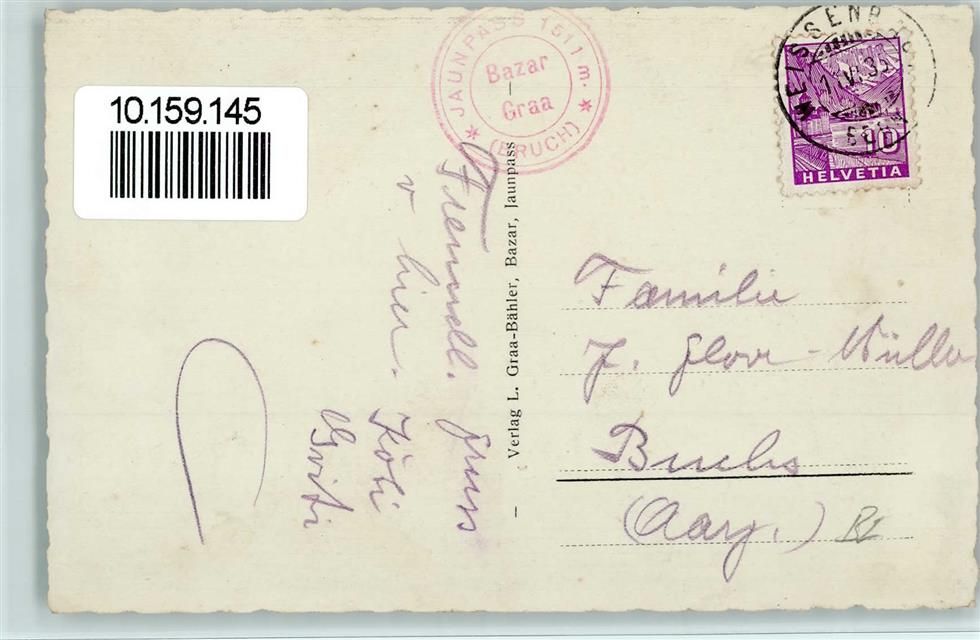 10.159.145
JAUNPASS 1511 m.
Bazar
Graa
(BRUCH)
WEISSENB
VI.35
10
HELVETIA
Verlag L. Graa-Bähler, Bazar, Jaunpass
Freundl. Gruss
v hier.
Köbi
Familie
J. Müller
Buchs
(Aarg.)